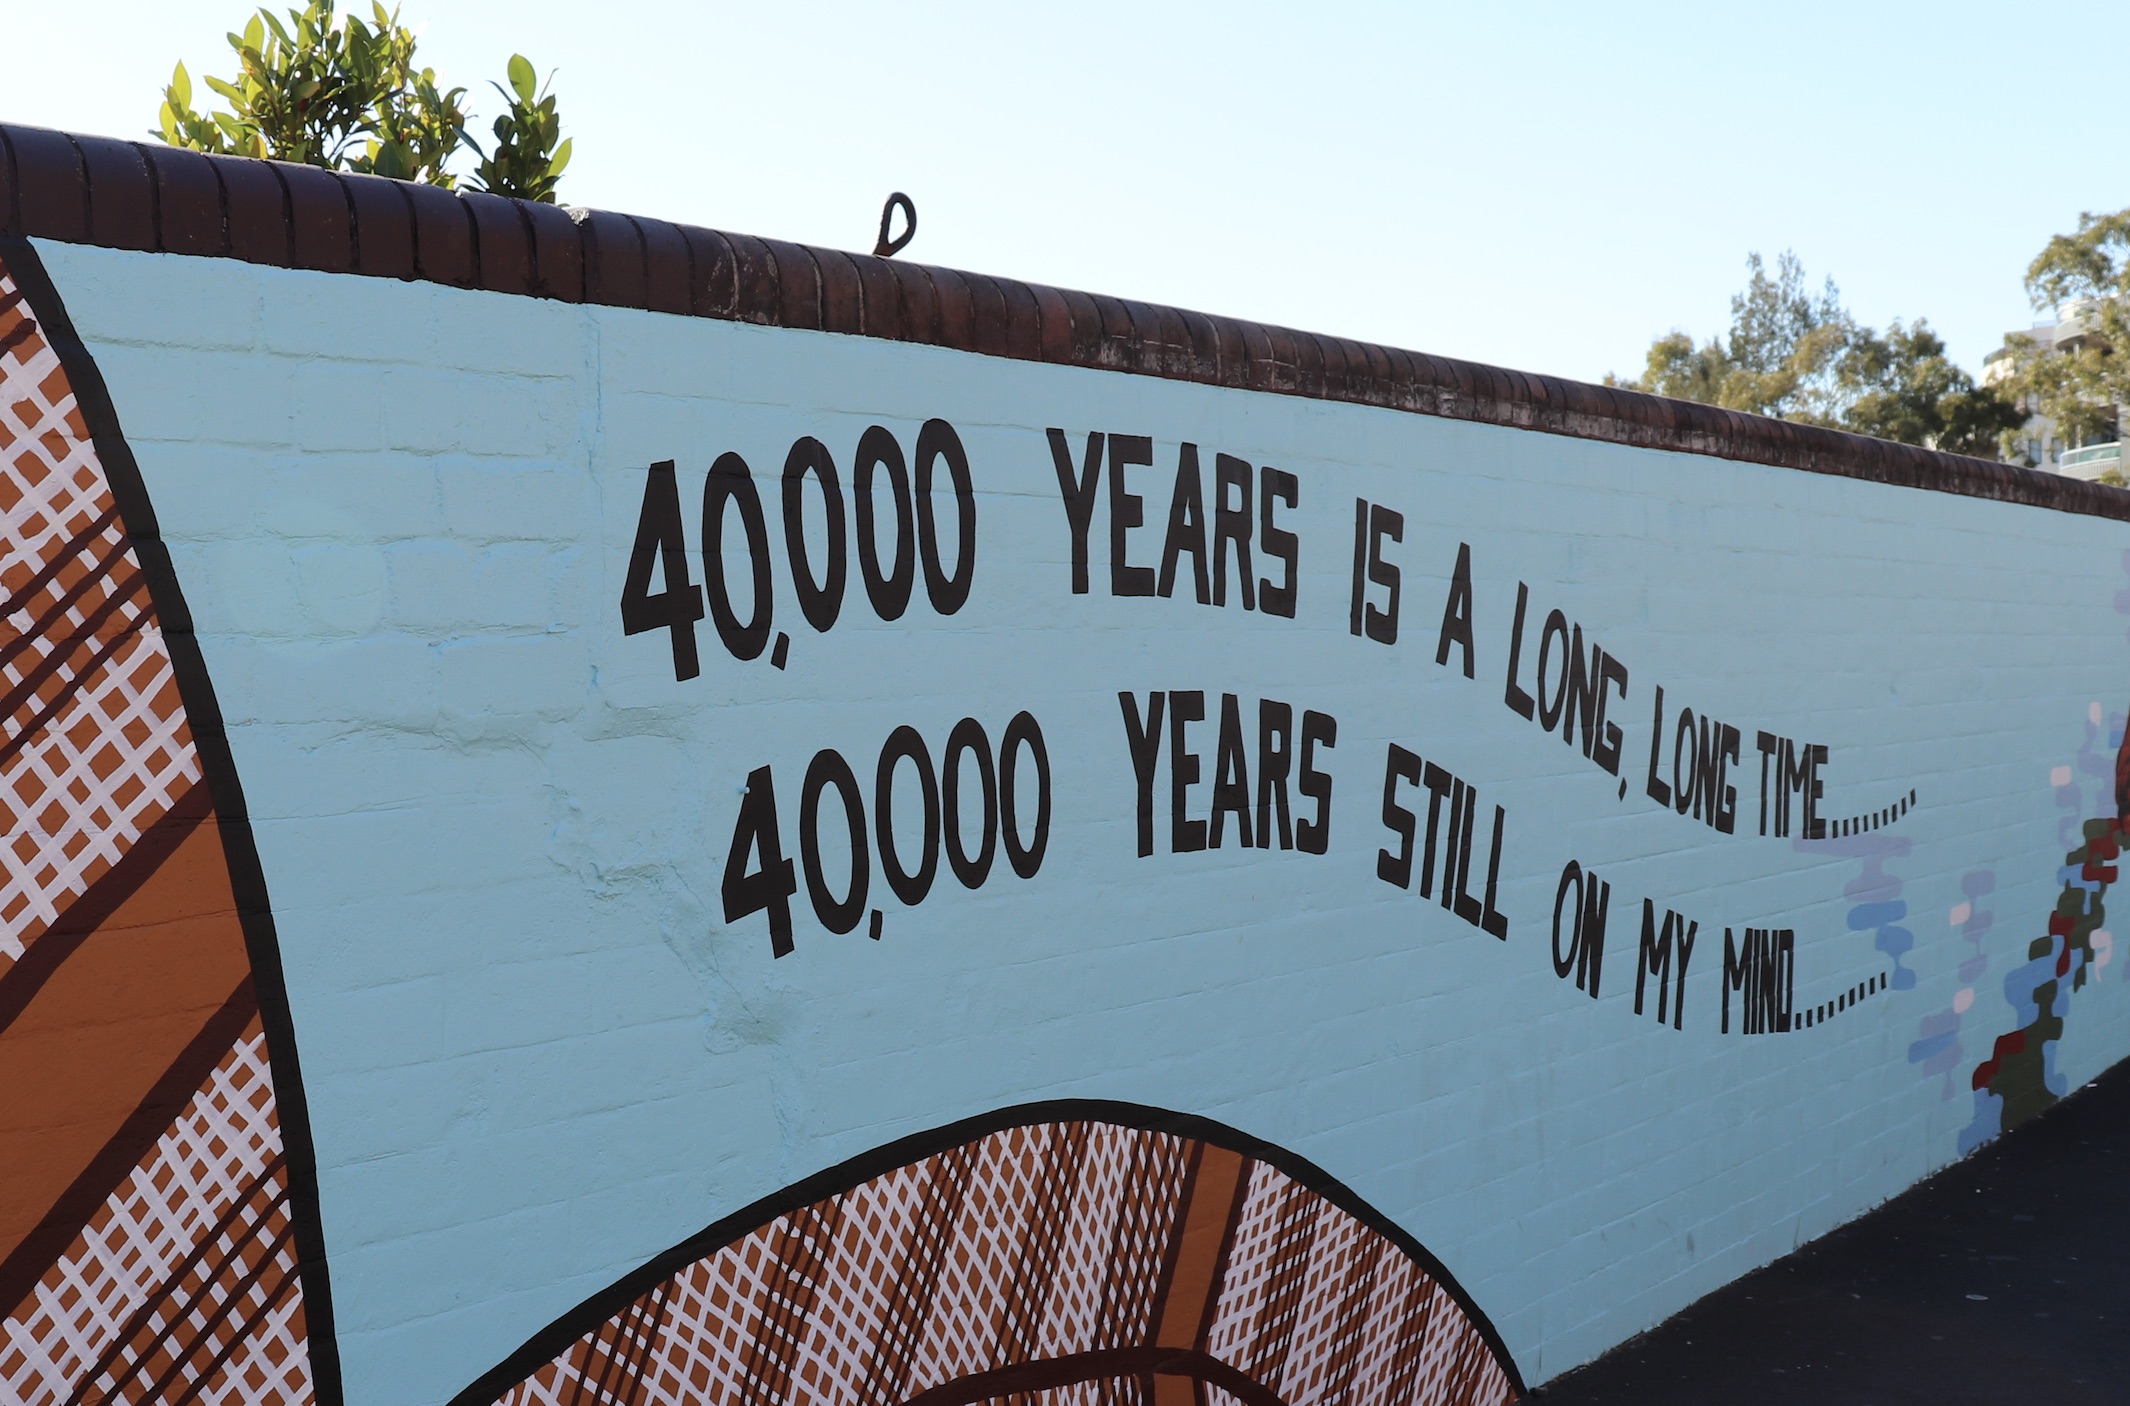 40,000 YEARS IS A LONG, LONG TIME.........
40,000 YEARS STILL ON MY MIND.........